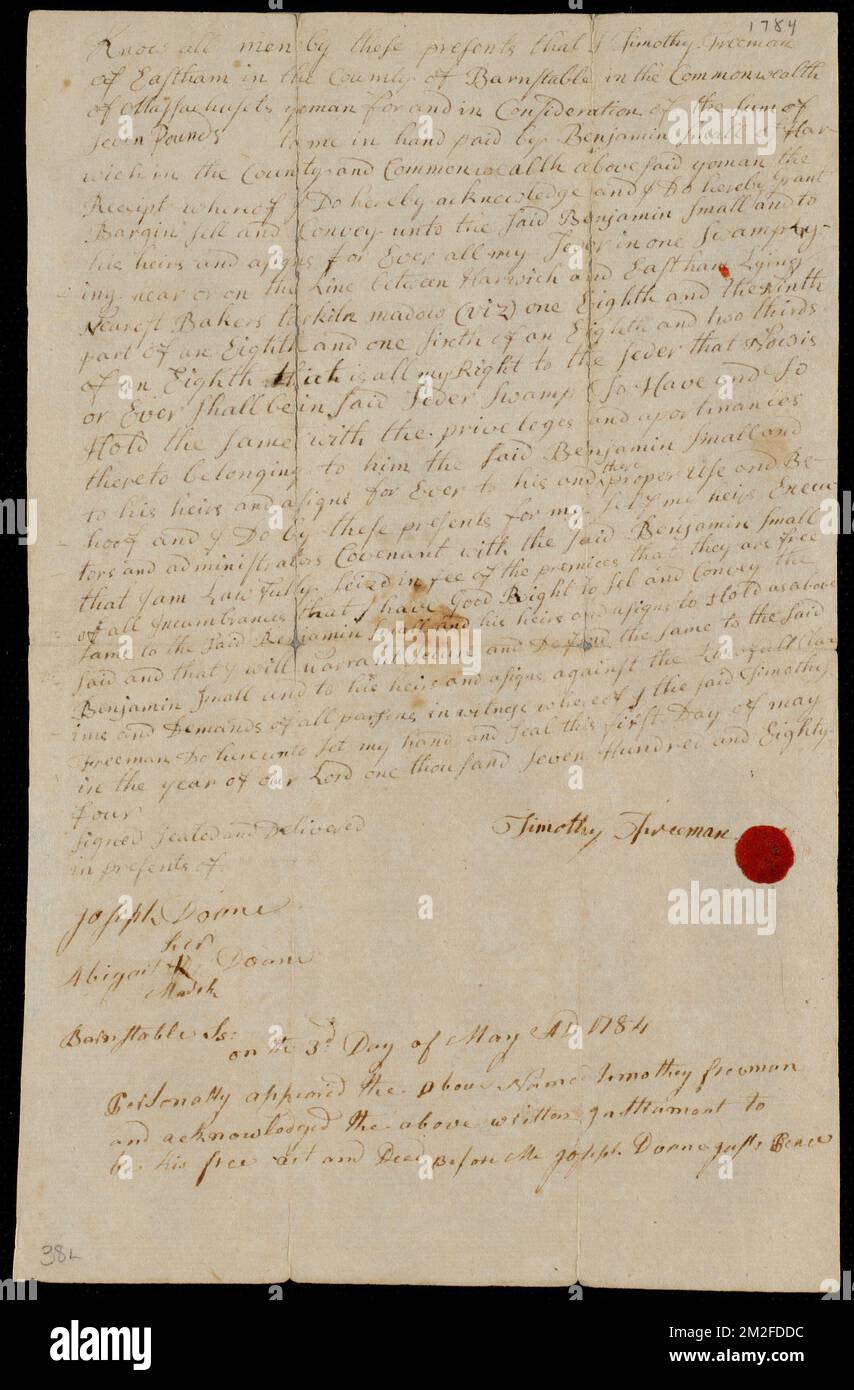 1784
Know all men by these presents that I Timothy Freeman
of Eastham in the County of Barnstable in the Commonwealth
of Massachusets yoman for and in Consideration of the sum of
Seven Pounds to me in hand paid by Benjamin Small of Har-
wich in the County and Commonwealth above said yoman the
Receipt whereof I Do hereby acknowledge and I Do hereby Grant
Bargin sell and Convey unto the said Benjamin Small and to
his heirs and asigns for Ever all my Seder in one Swamp Ly-
ing near or on the Line between Harwich and Eastham Lying
Nearest Bakers madow (viz) one Eighth and the Ninth
part of an Eighth and one sixth of an Eighth and two thirds
of an Eighth which is all my Right to the Seder that Now is
or Ever shall be in said Seder Swamp To Have and To
Hold the same with the priveloges and aportinances
thereto belonging to him the said Benjamin Small and
to his heirs and asigns for Ever to his and their proper Use and Be-
hoof and I Do by these presents for my self my heirs Execu
tors and administrators Covenant with the said Benjamin Small
that I am Lawfully Seizd in fee of the premices that they are free
of all Incumbrances that I have Good Right to Sel and Convey the
same to the said Benjamin Small and his heirs and asigns to Hold as above
said and that I will warrant secure and Defend the same to the said
Benjamin Small and to his heirs and asigns against the Lawfull Cla
ims and Demands of all parsons in witness whereof I the said Timothy
Freeman Do hereunto set my hand and seal this first Day of may
in the year of our Lord one thousand seven Hundred and Eighty
four
signed sealed and Delivered
in presents of
Timothy Freeman
Joseph Doane
her
Abigail X Doane
Mark
Barnstable Ss:
on the 3d Day of May AD 1784
Personally appeared the above Named timothey freeman
and acknowledged the above written Instrament to
be his free act and Deed Before Me Joseph Doane Justs Peace
38L
alamy
alamy
Image ID: 2M2FDDC
www.alamy.com